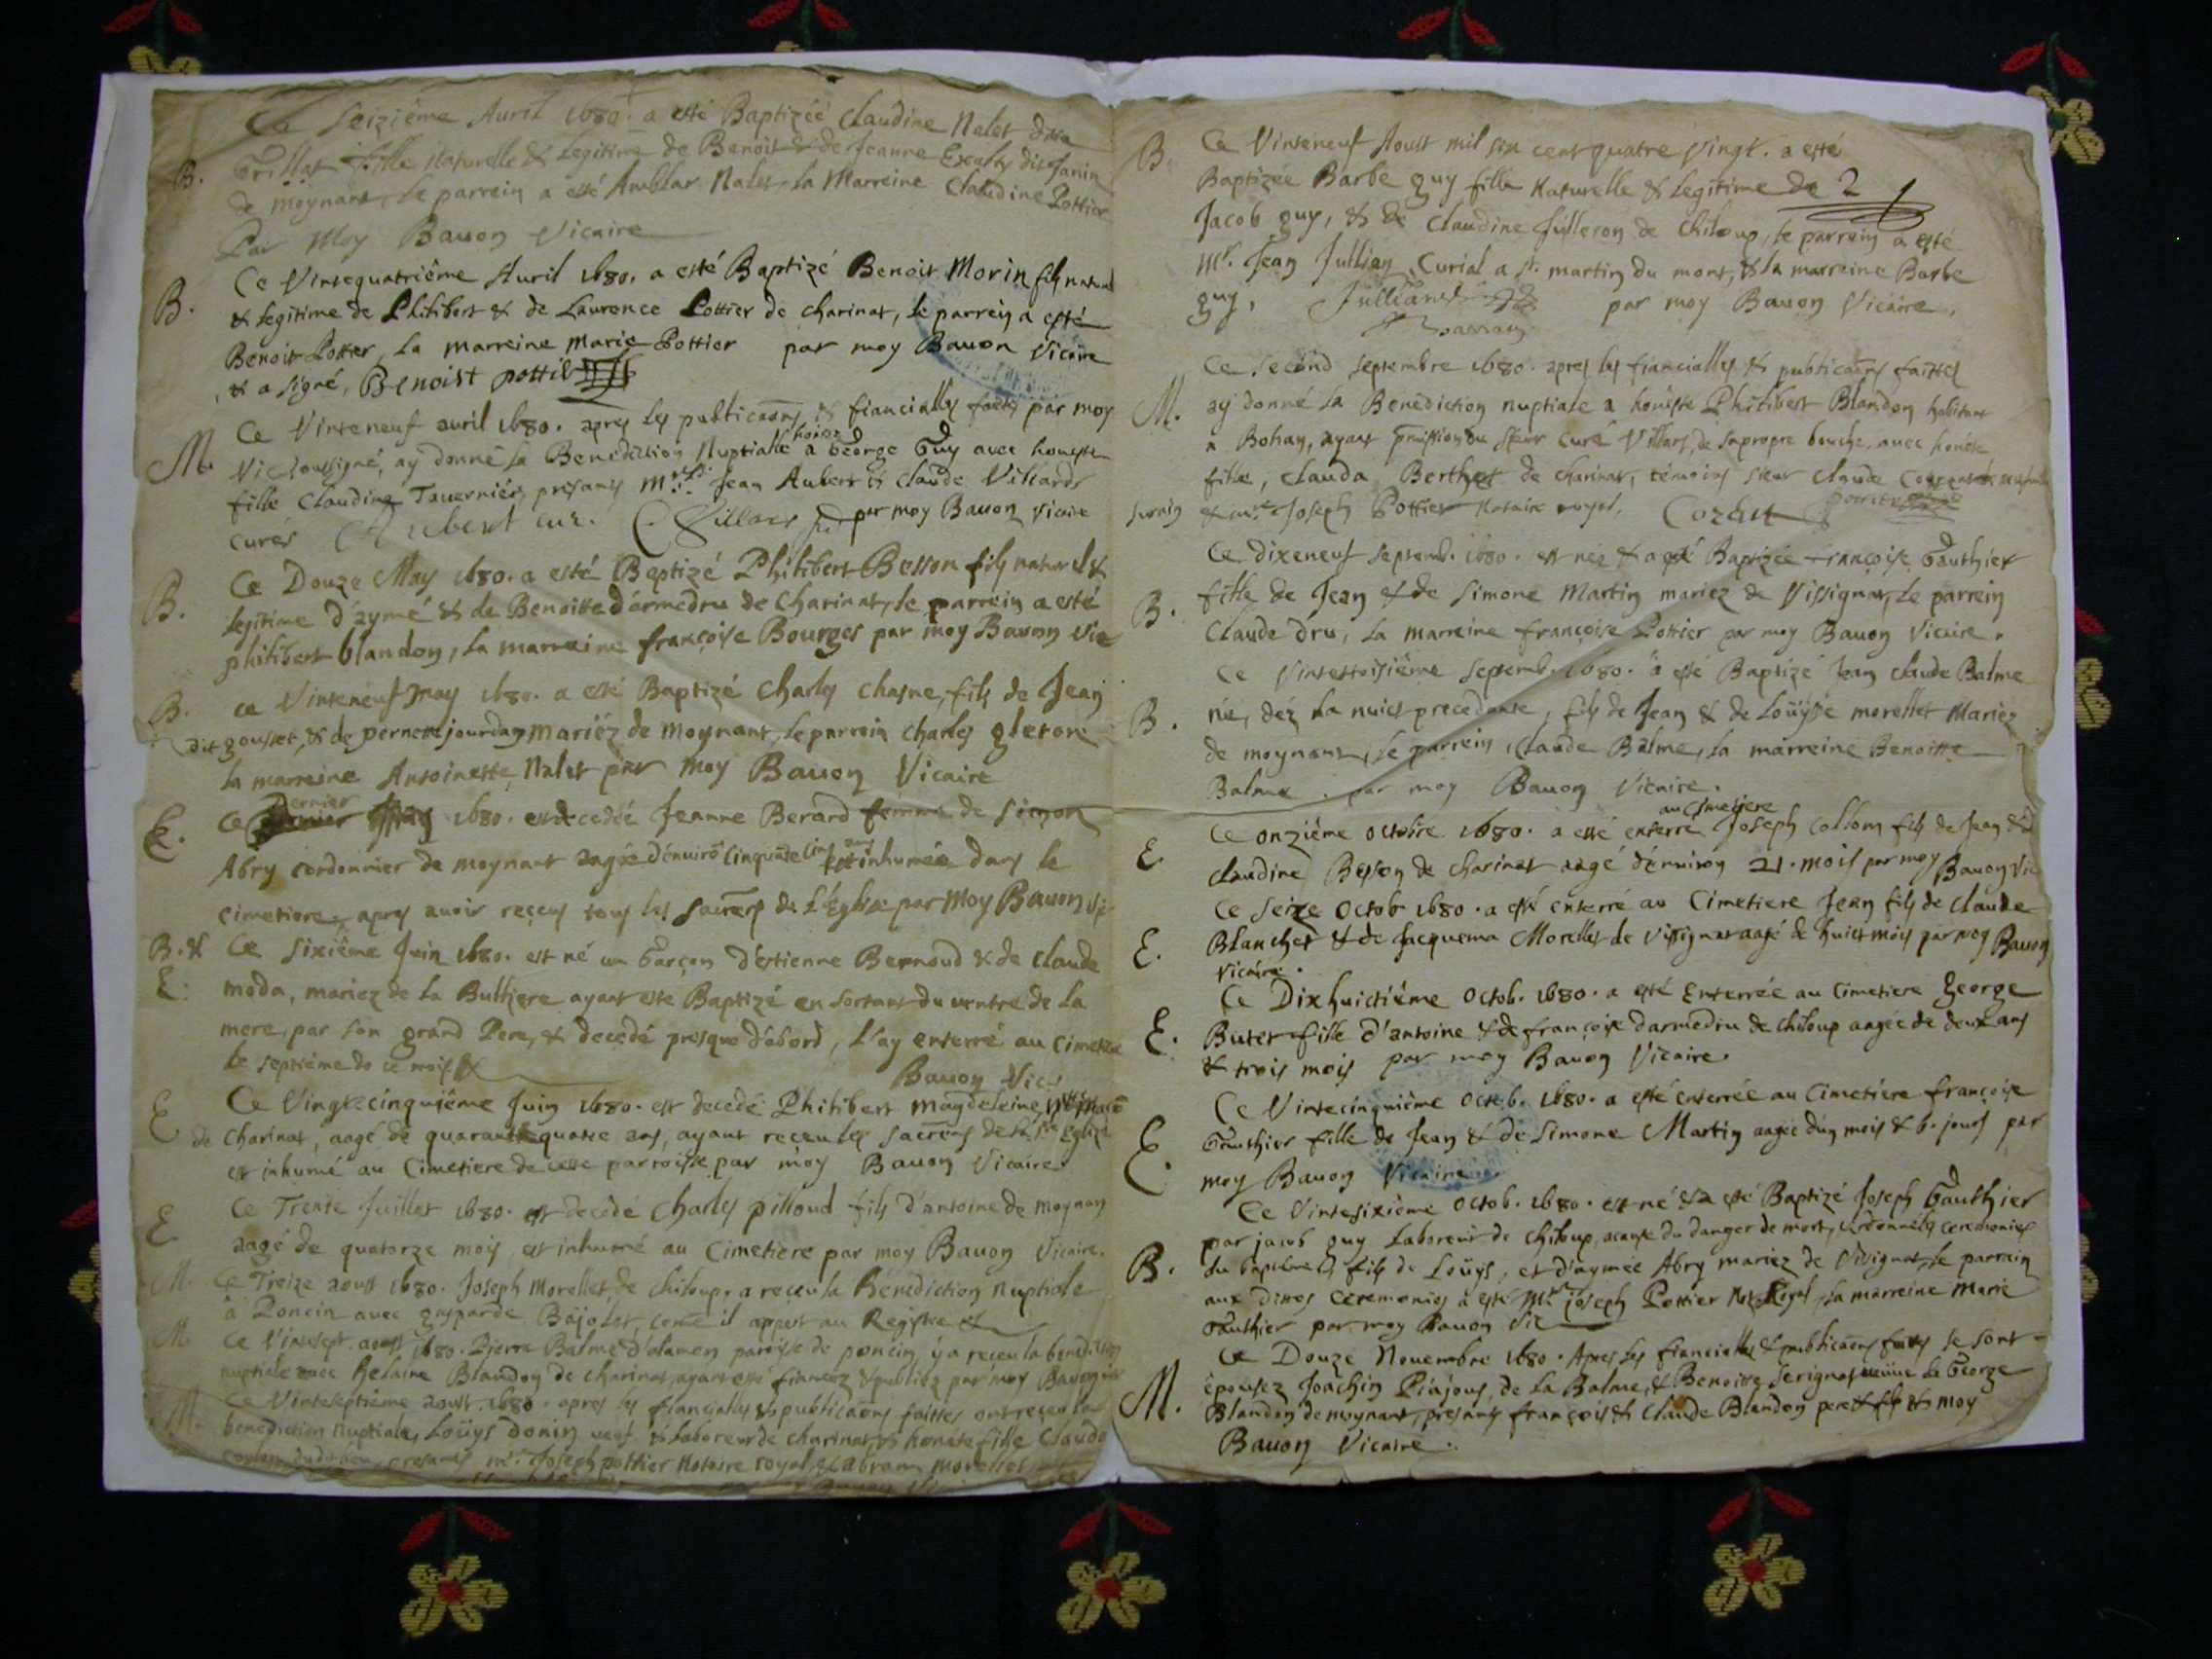 Ce Seiziéme Auril 1680. a esté Baptizéé Claudine Nalet ditte
B. Trillat fille Naturelle & Legitime de Benoit & de Jeanne dit Janin
de moynant, le parrein a esté Amblar Nalet, La Marreine Claudine Pottier
Par Moy Bauon Vicaire
Ce Vintequatriéme Auril 1680. a esté Baptizé Benoit Morin fils naturel
B. & legitime de Philibert & de Laurence Pottier de charinat, le parrein a esté
Benoit Pottier, La marreine Marie Pottier par moy Bauon Vicaire
& a signé, BEnoist pottie
Ce Vinteneuf auril 1680. apres les publicaons & fiancialles faites par moy
honor
M. Vic. soussigné, ay donné la Benediction Nuptialle a George Guy avec honeste
fille Claudine Tauernier, presants Mres Jean Aubert & Claude Villards
curés Aubert cur. C Villars par moy Bauon Vicaire
Ce Douze May 1680. a esté Baptizé Philibert Besson fils naturel &
B. legitime d'aymé & de Benoitte darmedru de Charinat, le parrein a esté
philibert blandon, la marreine françoise Bourges par moy Bauon Vic
B. ce Vinteneuf may 1680. a esté Baptizé Charles chasne, fils de Jean
dit gousset, & de pernette jourdan mariéz de moynant, le parrein Charles gleton
la marreine Antoinette Nalet par moy Bauon Vicaire
Dernier
E. Ce May 1680. est decedéé Jeanne Berard femme de Simon
Abry cordonnier de moynant aagée d'enuirõ Cinquāte Cinq ans est inhuméé dans le
Cimetiere, apres auoir reçeus tous les Sacrens de L'Eglise par Moy Bauon Vic
B. & Ce Sixiéme Juin 1680. est né un Garçon d'estienne Bernoud & de Claude
E. moda, mariez de la Buttiere ayant este Baptizé en sortant du ventre de La
mere, par son grand Pere, & decedé presque d'abord, L'ay enterré au Cimetiere
le septiéme de ce mois
Bauon Vic.
E Ce Vingtecinquiéme Juin 1680. est decedé Philibert Magdeleine
de Charinat, aagé de quarante quatre ans, ayant receu les Sacrens de la Ste Eglize
est inhumé au Cimetiere de cette parroisse par moy Bauon Vicaire
E Ce Trente Juillet 1680. est decede Charles pilloud fils d'antoine de Moynan
aagé de quatorze mois, est inhumé au Cimetiere par moy Bauon Vicaire.
M. Ce Treize aoust 1680. Joseph Morellet, de chiloup, a receu la Benediction nuptiale
à Poncin avec gasparde Bajolet, come il appert au Registre
M Ce Vintsept. aoust 1680. Pierre Balme d'alamen paroisse de poncin, y a receu la benediction
nuptiale avec helaine Blandon de charinat, ayant este fiancez & publiez par moy Bauon
Ce Vinteseptiéme aoust. 1680. apres les fiancialles & publicaons faittes ont reçeu la
M. benediction Nuptiale, Loüys donin & Laboreur de charinat, & honeste fille Claude
presants mre Joseph pottier Notaire royal & abram morellet
Bauon
B. Ce Vinteneuf Aoust mil six cent quatre Vingt. a esté
Baptizée Barbe guy fille Naturelle & Legitime de 2
Jacob guy, & de Claudine Julleron de chiloup, le parrein a esté
Mr. Jean Jullian, Curial a st. martin du mont, & la marreine Barbe
guy, Julliand par moy Bauon Vicaire.
Ce second septembre 1680. apres les fiancialles & publicaons faittes
M. ay donné la Benediction nuptiale a honeste Philibert Blandon habitant
a Bohan, ayant du Sieur curé Villars, de sa propre bouche, avec honeste
fille, Clauda Berthet de charinat, témoins sieur Claude
& mre Joseph Pottier Notaire royal.
Ce dixeneuf septemb. 1680. est née & a esté Baptizée françoise Gauthier
B. fille de Jean & de Simone Martin mariez de Vissignat, le parrein
Claude dru, la marreine françoise Pottier par moy Bauon Vicaire.
Ce Vintettoisiéme Septemb. 1680. a esté Baptizé Jean claude Balme
B. né, déz La nuict precedante, fils de Jean & de Loüyse morellet Mariez
de moynant, le parrein, Claude Balme, la marreine Benoitte
Balme. par moy Bauon Vicaire.
au Cimetiere
Ce onziéme octobre 1680. a esté enterre Joseph Collom fils de Jean & d
E. claudine Besson de charinat aagé d'enuiron 21. mois par moy Bauon Vic
Ce Seize Octob 1680. a esté enterré au Cimetiere Jean fils de Claude
E. Blanchet & de Jacquema Morellet de Vissignat aagé de huict mois par moy Bauon
Vicaire.
Ce Dixhuictiéme Octob. 1680. a esté Enterrée au Cimetiere George
E. Butet fille d'antoine & de françoise darmedru de chiloup aagée de deux ans
& trois mois par moy Bauon Vicaire.
Ce Vintecinquiéme Octob. 1680. a esté enterrée au Cimetiere françoise
E. Gauthier fille de Jean & de Simone Martin aagée d'un mois & 6. jours par
moy Bauon Vicaire.
Ce Vintesixiéme Octob. 1680. est né & a esté Baptizé Joseph Gauthier
par jacob guy Laboreur de chiloup, acause du danger de mort, ceremonies
B. du baptéme, fils de Loüys, et d'aymée Abry mariez de Vissignat, le parrain
aux dittes Ceremonies a esté Mre Joseph Pottier Not. Royal, la marreine Marie
Gauthier par moy Bauon Vic
Ce Douze Nouembre 1680. Apres les fiancialles & publicaons faites se sont
M. épousez Joachin Piajous, de La Balme, & Benoitte Serignat veüue de George
Blandon de moynant, presants françois & Claude Blandon pere & fils & moy
Bauon Vicaire.